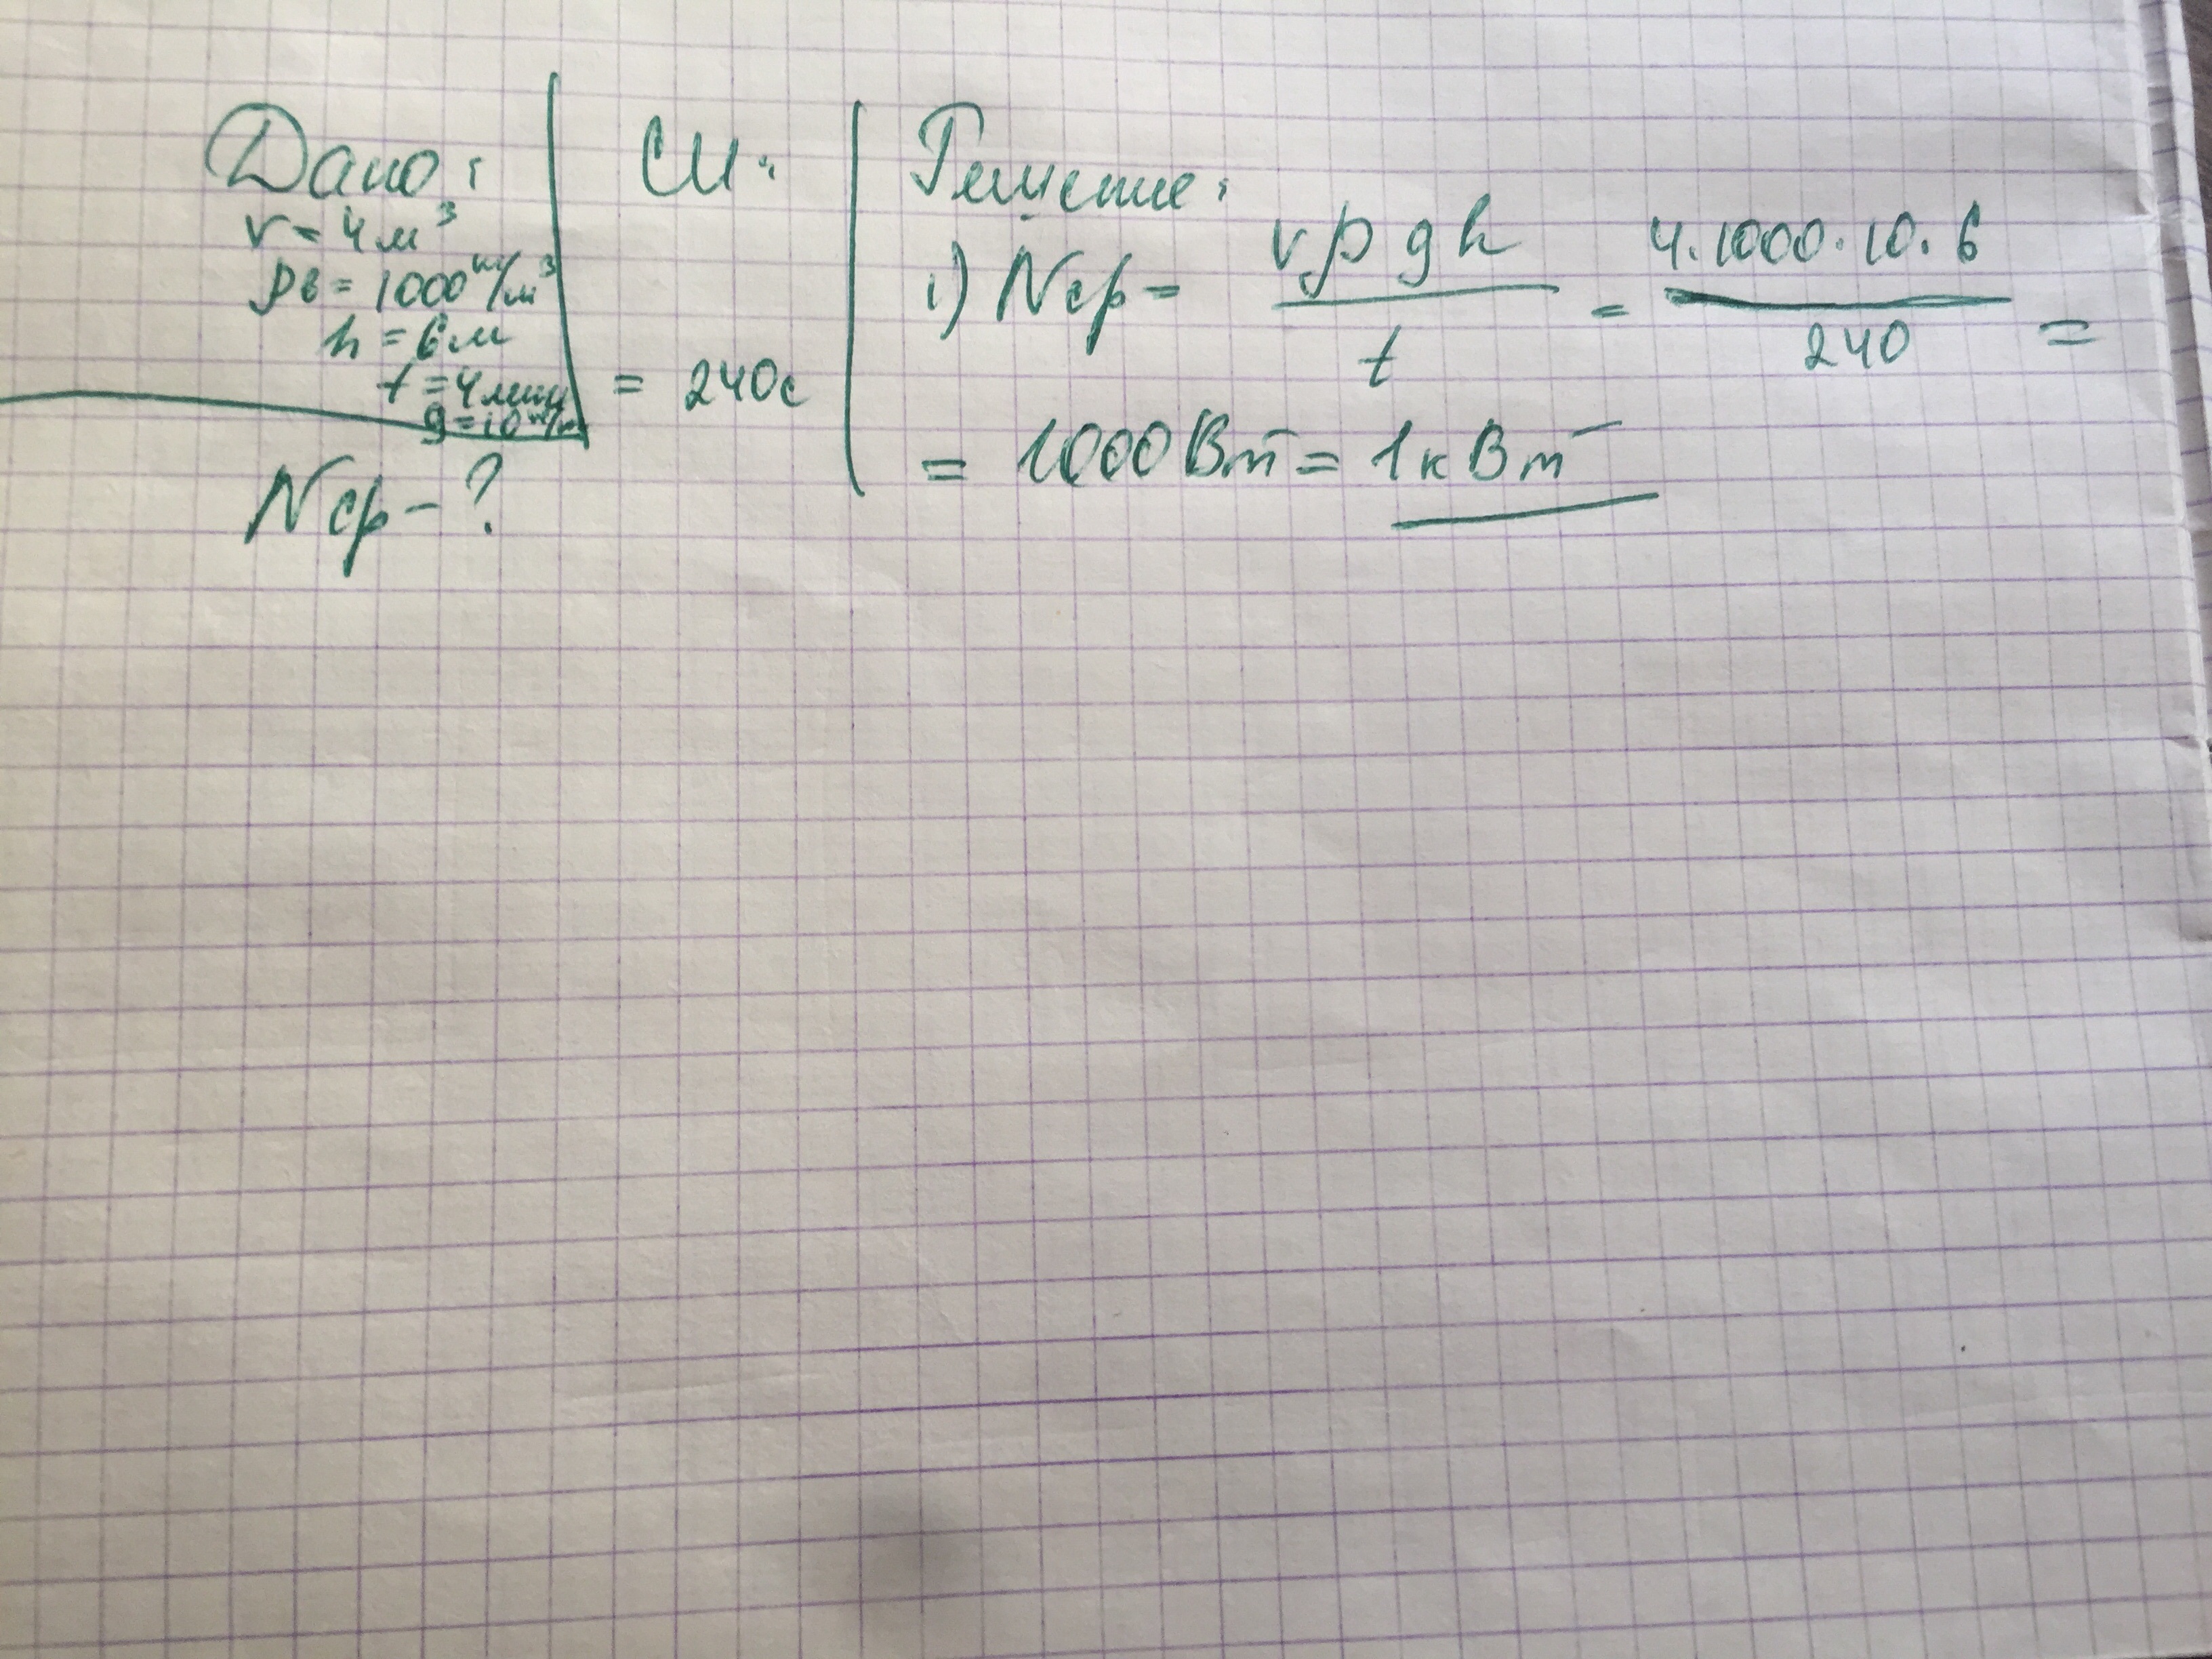 Дано:
V = 4 м³
ρв = 1000 кг/м³
h = 6 м
t = 4 мин
g = 10 Н/кг
Nср - ?
СИ:
= 240 с
Решение:
1) Nср = Vρgh / t = 4·1000·10·6 / 240 =
= 1000 Вт = 1 кВт